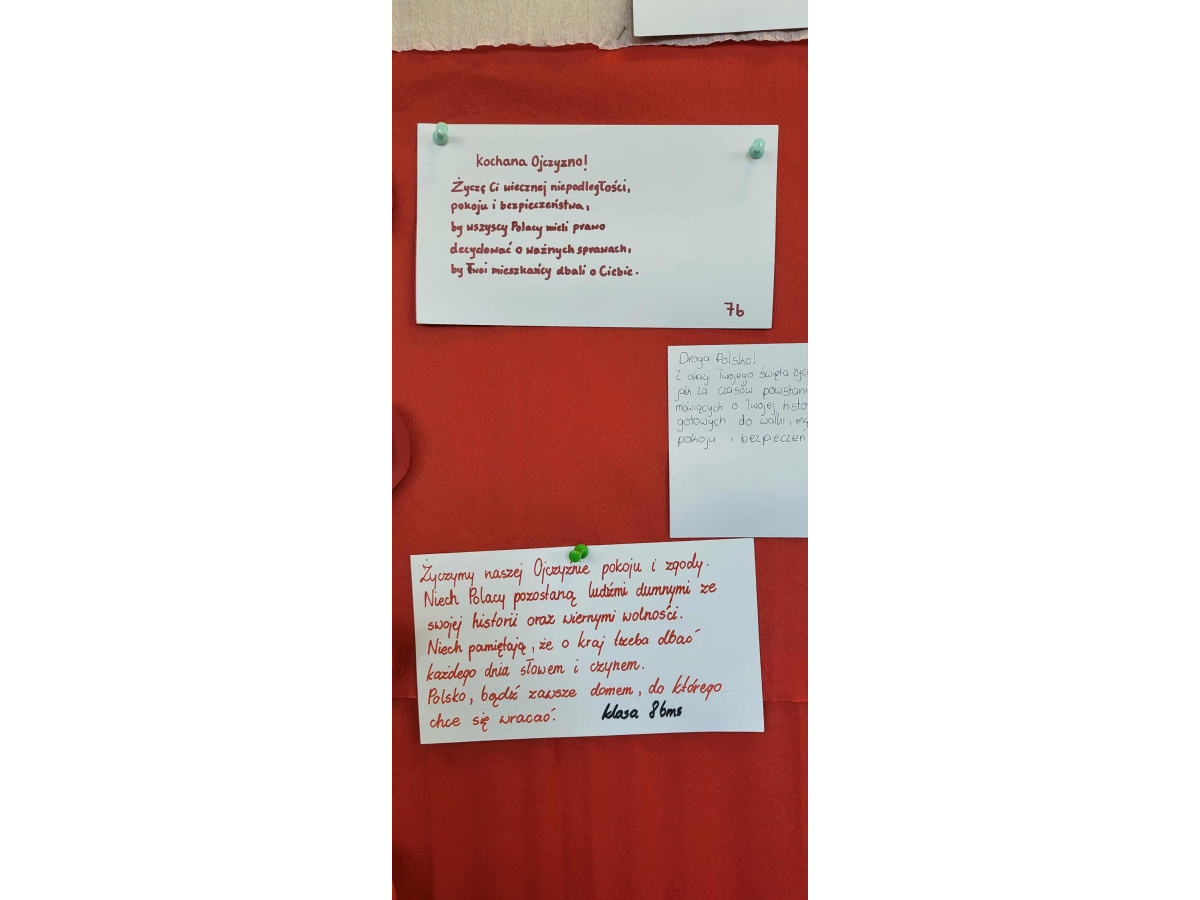 Kochana Ojczyzno!
Życzę Ci wiecznej niepodległości,
pokoju i bezpieczeństwa,
by wszyscy Polacy mieli prawo
decydować o ważnych sprawach,
by Twoi mieszkańcy dbali o Ciebie.
7b
Droga Polsko!
Z okazji Twojego święta
jak za czasów
mówiących o Twojej
gotowych do walki,
pokoju i
Życzymy naszej Ojczyźnie pokoju i zgody.
Niech Polacy pozostaną ludźmi dumnymi ze
swojej historii oraz wiernymi wolności.
Niech pamiętają, że o kraj trzeba dbać
każdego dnia słowem i czynem.
Polsko, bądź zawsze domem, do którego
chce się wracać. klasa 8bms